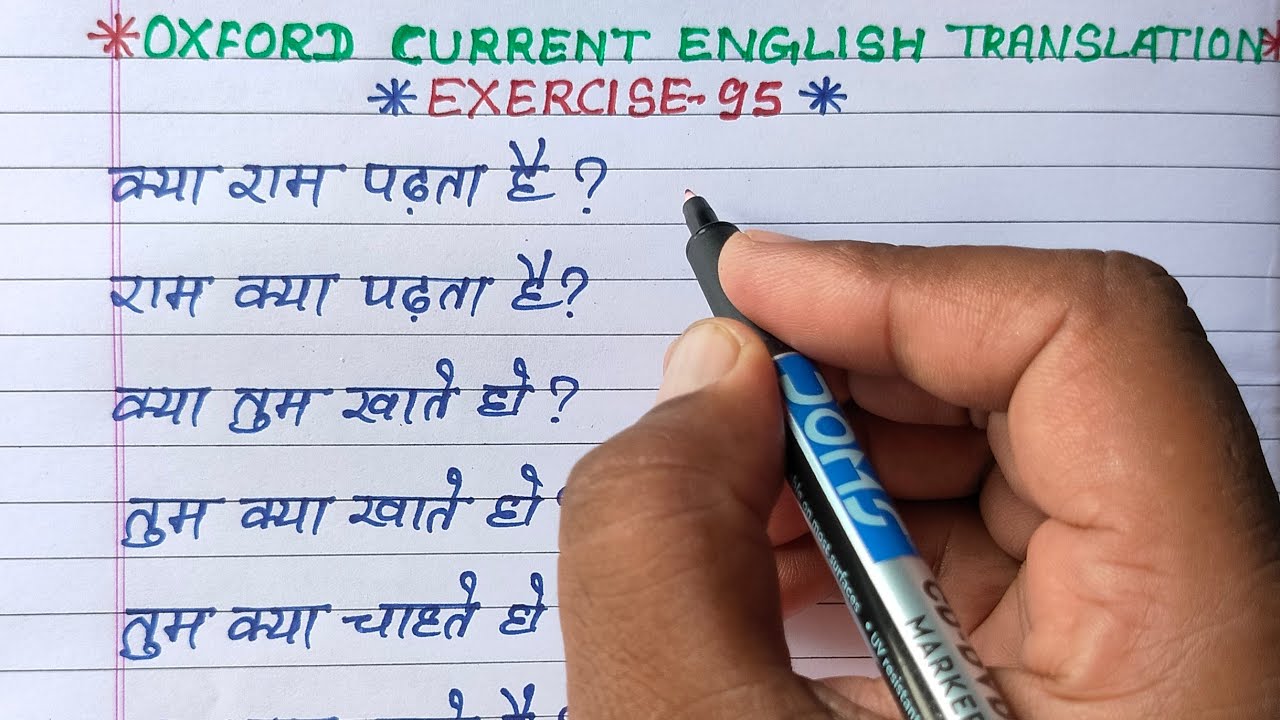 *OXFORD CURRENT ENGLISH TRANSLATION*
*EXERCISE-95*
क्या राम पढ़ता है ?
राम क्या पढ़ता है?
क्या तुम खाते हो ?
तुम क्या खाते हो
तुम क्या चाहते हो
DOMS
CD-DVD
MARKER
on most surfaces • UV resistant